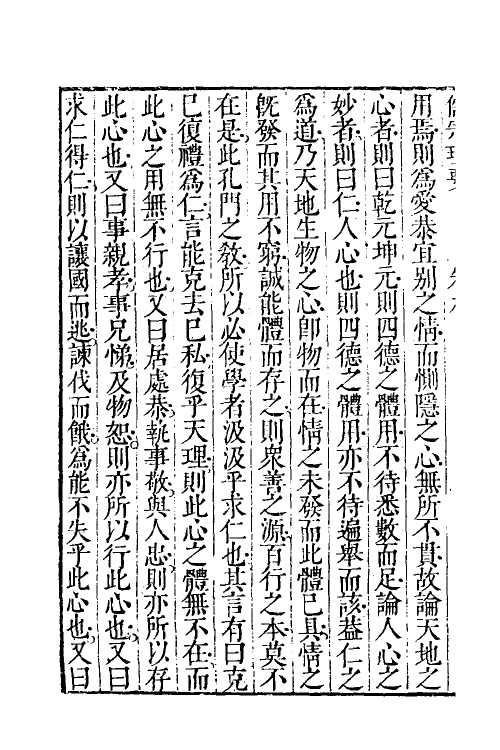 用焉則爲愛恭宜别之情而惻隱之心無所不貫故論天地之
心者則曰乾元坤元則四德之體用不待悉數而足論人心之
妙者則曰仁人心也則四德之體用亦不待遍舉而該葢仁之
爲道乃天地生物之心即物而在情之未發而此體已具情之
旣發而其用不窮誠能體而存之則衆善之源百行之本莫不
在是此孔門之敎所以必使學者汲汲乎求仁也其言有曰克
已復禮爲仁言能克去已私復乎天理則此心之體無不在而
此心之用無不行也又曰居處恭執事敬與人忠則亦所以存
此心也又曰事親孝事兄悌及物恕則亦所以行此心也又曰
求仁得仁則以讓國而逃諫伐而餓爲能不失乎此心也又曰